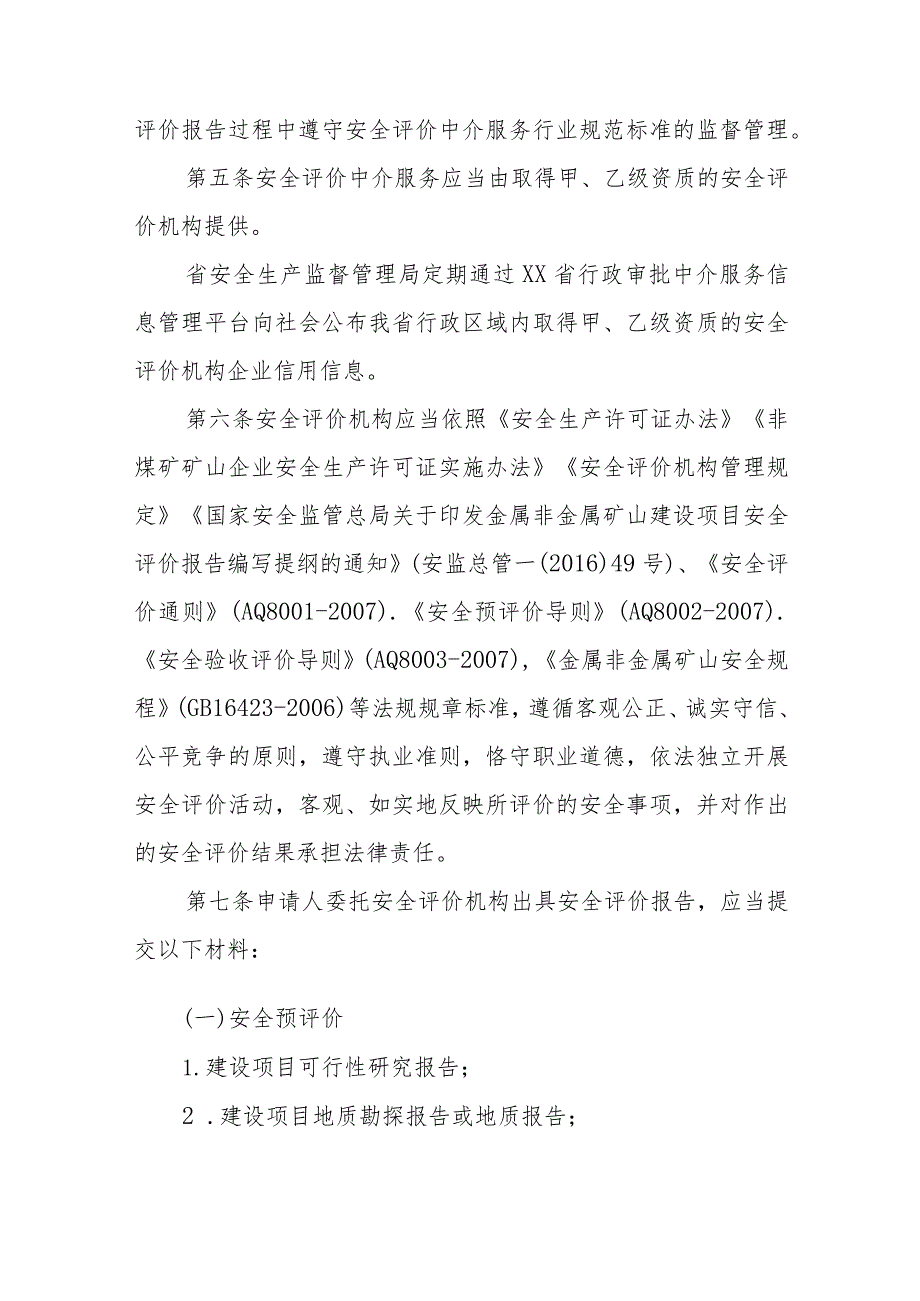 评价报告过程中遵守安全评价中介服务行业规范标准的监督管理。
第五条安全评价中介服务应当由取得甲、乙级资质的安全评
价机构提供。
省安全生产监督管理局定期通过 XX 省行政审批中介服务信
息管理平台向社会公布我省行政区域内取得甲、乙级资质的安全
评价机构企业信用信息。
第六条安全评价机构应当依照《安全生产许可证办法》《非
煤矿矿山企业安全生产许可证实施办法》《安全评价机构管理规
定》《国家安全监管总局关于印发金属非金属矿山建设项目安全
评价报告编写提纲的通知》(安监总管一(2016)49 号)、《安全评
价通则》(AQ8001-2007).《安全预评价导则》(AQ8002-2007).
《安全验收评价导则》(AQ8003-2007),《金属非金属矿山安全规
程》(GB16423-2006)等法规规章标准，遵循客观公正、诚实守信、
公平竞争的原则，遵守执业准则，恪守职业道德，依法独立开展
安全评价活动，客观、如实地反映所评价的安全事项，并对作出
的安全评价结果承担法律责任。
第七条申请人委托安全评价机构出具安全评价报告，应当提
交以下材料：
(一)安全预评价
1.建设项目可行性研究报告；
2 .建设项目地质勘探报告或地质报告；